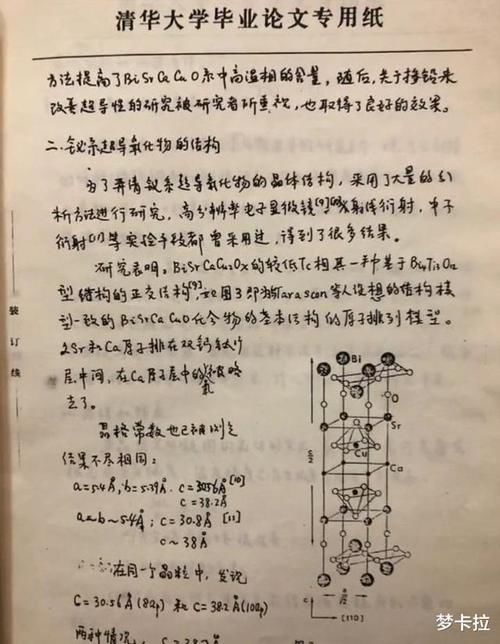 清华大学毕业论文专用纸
方法提高了BiSrCaCuO系中高温相的含量，随后，关于掺铅来
改善超导性的研究被研究者所重视，也取得了良好的效果。
二.铋系超导氧化物的结构
为了弄清铋系超导氧化物的晶体结构，采用了大量的分
析方法进行研究，高分辨率电子显微镜[9]，X射线衍射，中子
衍射等实验手段都曾采用过，得到了很多结果。
研究表明，BiSrCaCu2Ox的较低Tc相是一种基于Bi4Ti3O12
型结构的正交结构[9]，如图3即为Tarascon等人设想的结构模
型一致的BiSrCaCuO化合物的基本结构的原子排列模型。
Sr和Ca原子排在双钙钛矿
层中间，在Ca原子层中的氧被略
去了。
晶格常数也已被测定
结果不尽相同：
a=5.4Å，b=5.39Å. c=30.56Å [10]
c=38.2Å
a≈b~5.4Å；c=30.8Å [11]
c~38Å
在同一个晶粒中，发现
C=30.56Å(80%) 和 C=38.2Å(100%)
两种情况
装订线
Bi
O
Sr
Cu
Ca
c/2
c
[110]
梦卡拉